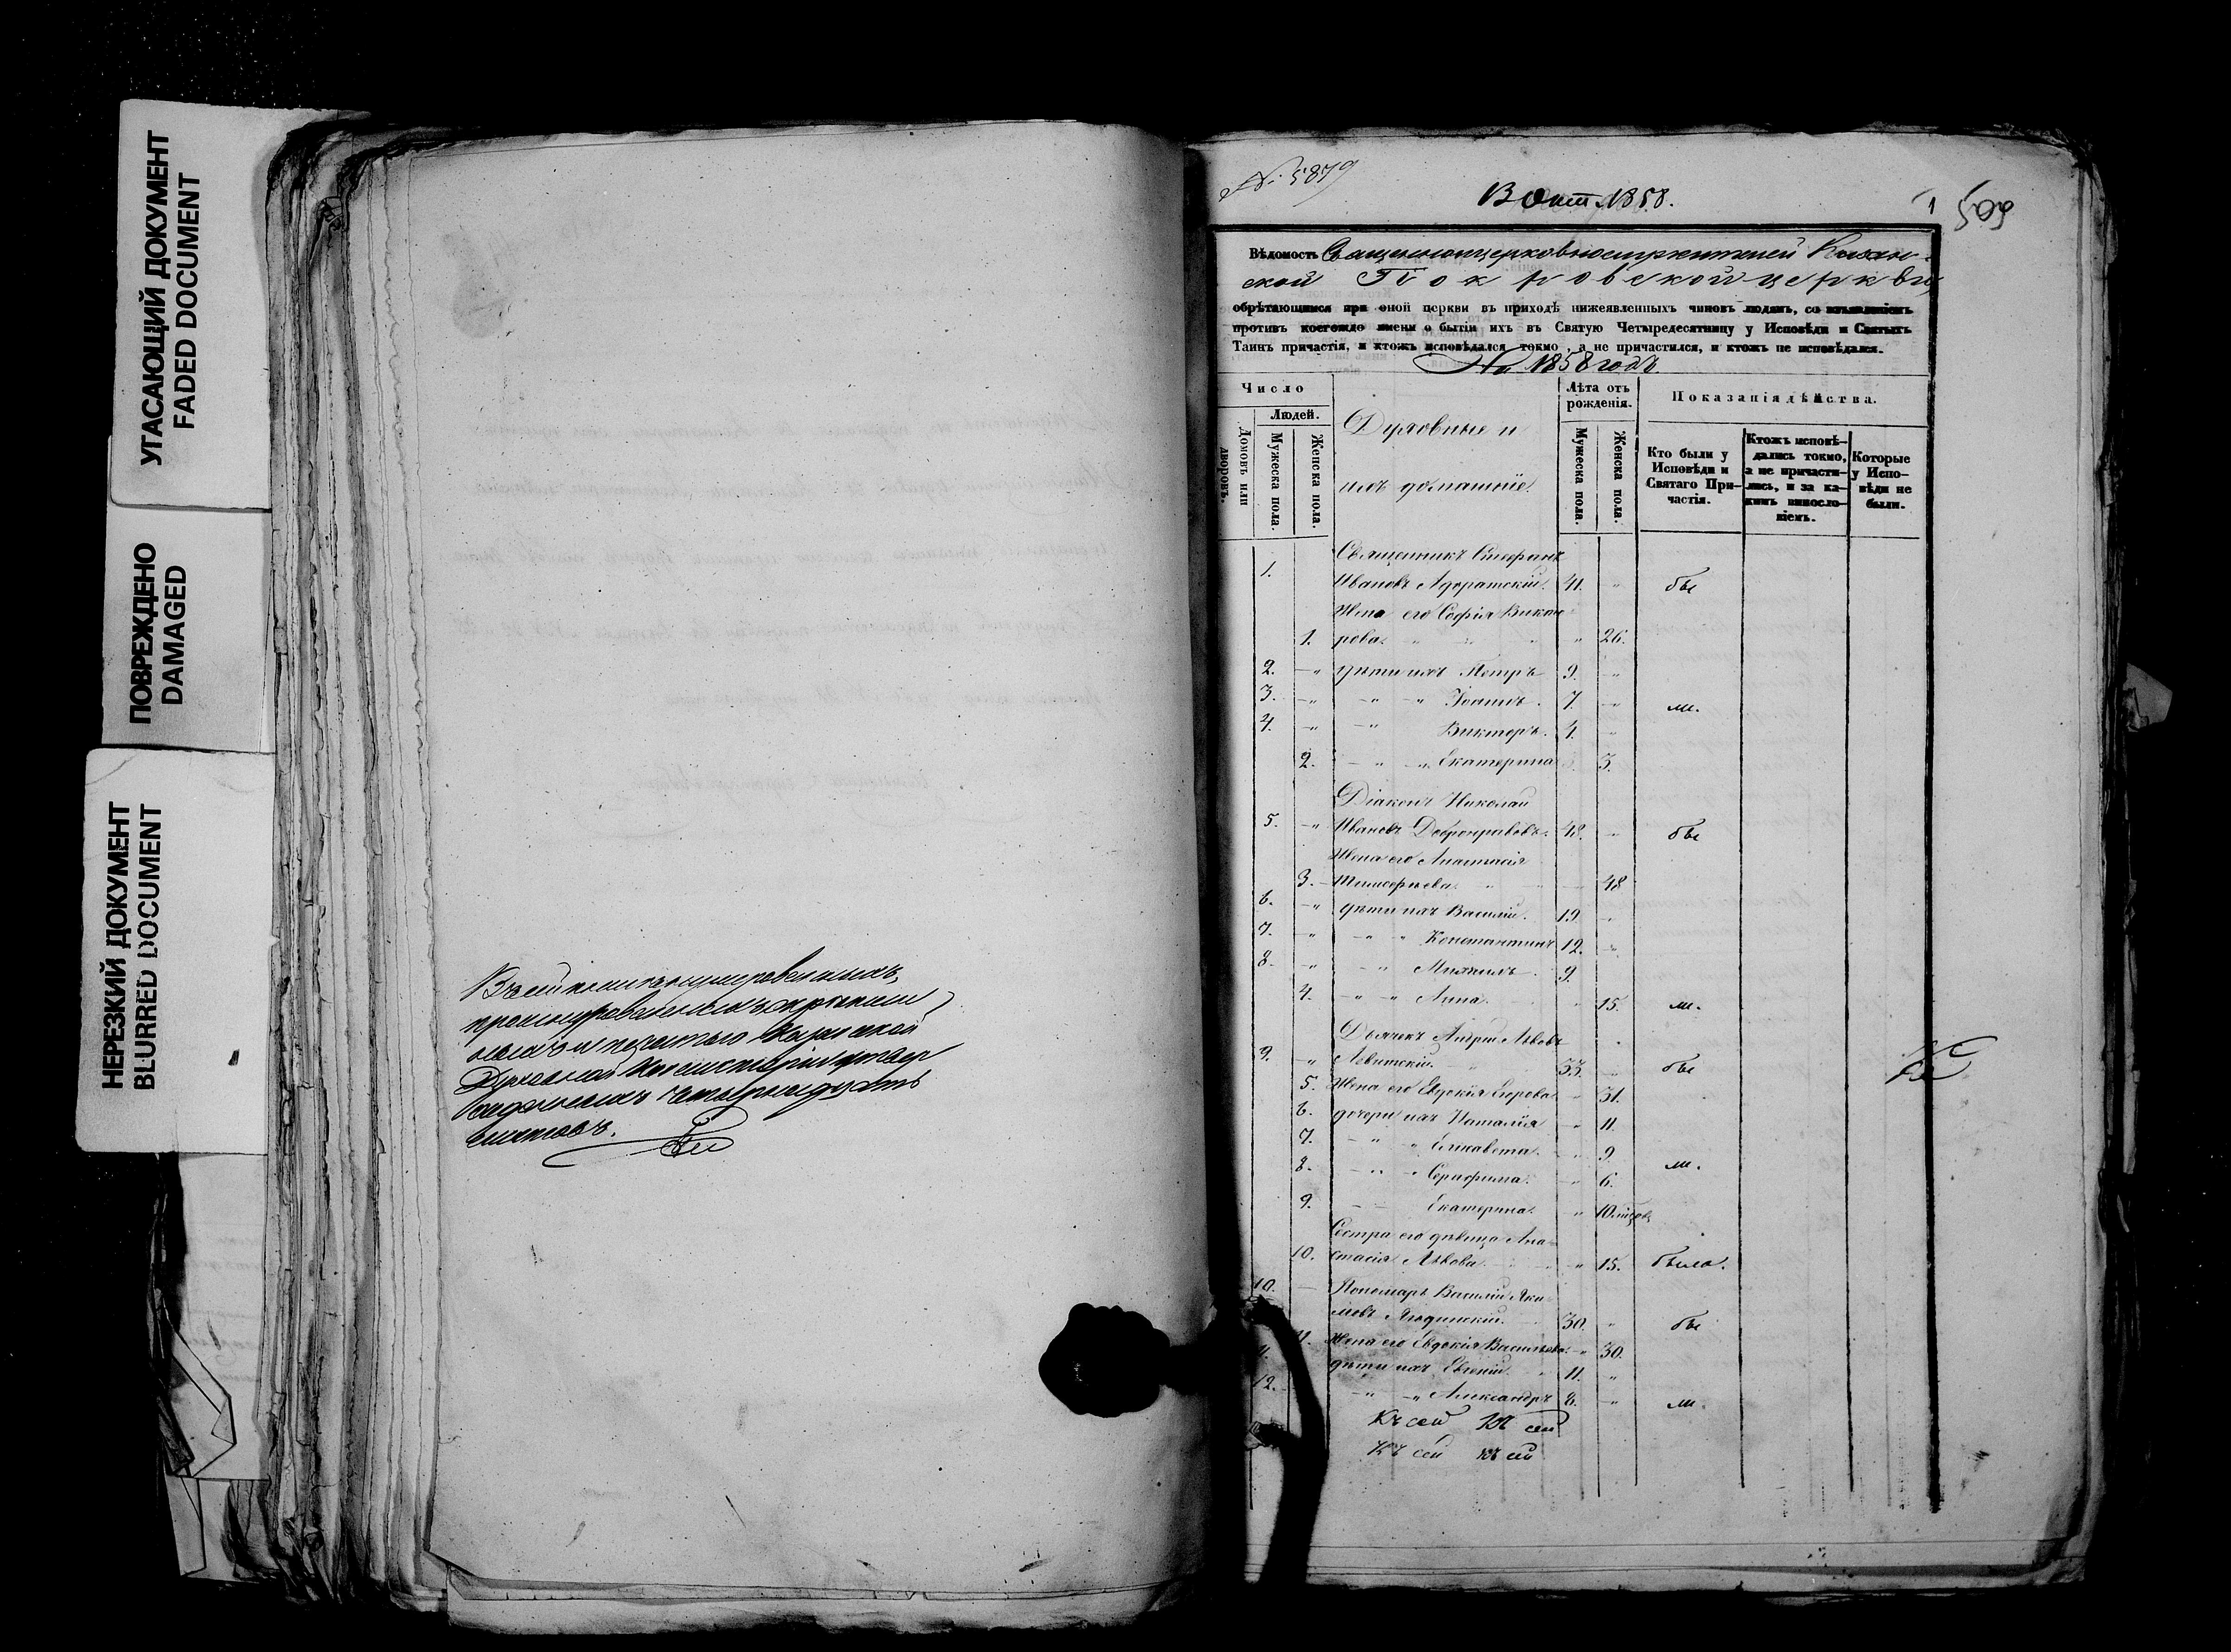 УГАСАЮЩИЙ ДОКУМЕНТ
FADED DOCUMENT
ПОВРЕЖДЕНО
DAMAGED
НЕРЕЗКИЙ ДОКУМЕНТ
BLURRED DOCUMENT
Казанской
Духовной Консисторіи
четырнадцать
листовъ.
№ 5879
1858.
1
509
Вѣдомость Священноцерковнослужителей Казан-
ской Покровской церкви,
обрѣтающимся при оной церкви въ приходѣ нижеявленныхъ чиновъ людямъ, со изъявленіемъ
противъ коегождо имени о бытіи ихъ въ Святую Четыредесятницу у Исповѣди и Святыхъ
Таинъ причастія, и ктожъ исповѣдался токмо, а не причастился, и ктожъ не исповѣдался.
На 1858 годъ
Число
Людей.
Домовъ или дворовъ.
Мужеска пола.
Женска пола.
Духовные и
ихъ домашніе.
Лѣта отъ рожденія.
Мужеска пола.
Женска пола.
Показанія дѣйства.
Кто были у Исповѣди и Святаго Причастія.
Ктожъ исповѣдались токмо, а не причастились, и за какимъ винословіемъ.
Которые у Исповѣди не были.
Священникъ Стефанъ
1. Ивановъ Адоратскій. 41. " бы
Жена его Софія Викто-
1. рова. " 26.
2. " дѣти ихъ Петръ 9. "
3. " " " Іоаннъ. 7. " м.
4. " " Викторъ. 4. "
2. " " Екатерина 3.
Діаконъ Николай
5. " Ивановъ Добронравовъ. 48. " бы
Жена его Анастасія
3. Тимофеева. 48
6. " дѣти ихъ Василій. 19. "
7. " " " Константинъ 12. "
8. " " Михаилъ. 9.
4. " " Анна. " 15. м.
Дьячекъ Андрей Львовъ
9. " Левитскій. 33. " бы
5. Жена его Евдокія Егорова " 31.
6. дочери ихъ Наталія " 11.
7. " " Елисавета. " 9
8. " " Серафима. " 6. м.
9. Екатерина. " 10 мѣсяц.
Сестра его дѣвица Ана-
10. стасія Львова. " 15. была.
10. Пономарь Василій Яки-
мовъ 30. " бы
11. Жена его Евдокія Васильева. " 30.
дѣти ихъ Евгеній. 11. "
12. " " Александръ 8. " м.
Къ сей Къ сей
Къ сей къ сей